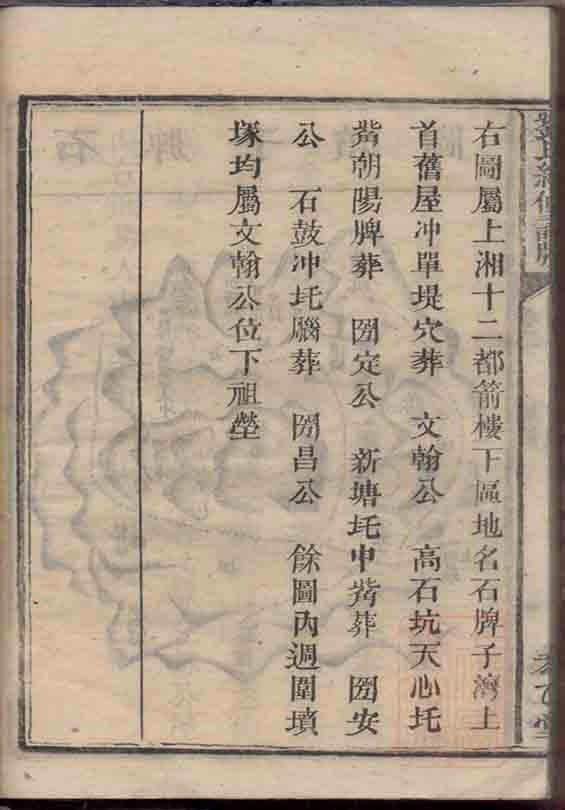 右圖屬上湘十二都箭樓下區地名石牌子灣上
首舊屋冲單堤穴葬　文翰公　高石坑天心圫
嘴朝陽牌葬　圀定公　新塘圫中嘴葬　圀安
公　石鼓冲圫腦葬　圀昌公　餘圖內週圍墳
塚均屬文翰公位下祖塋